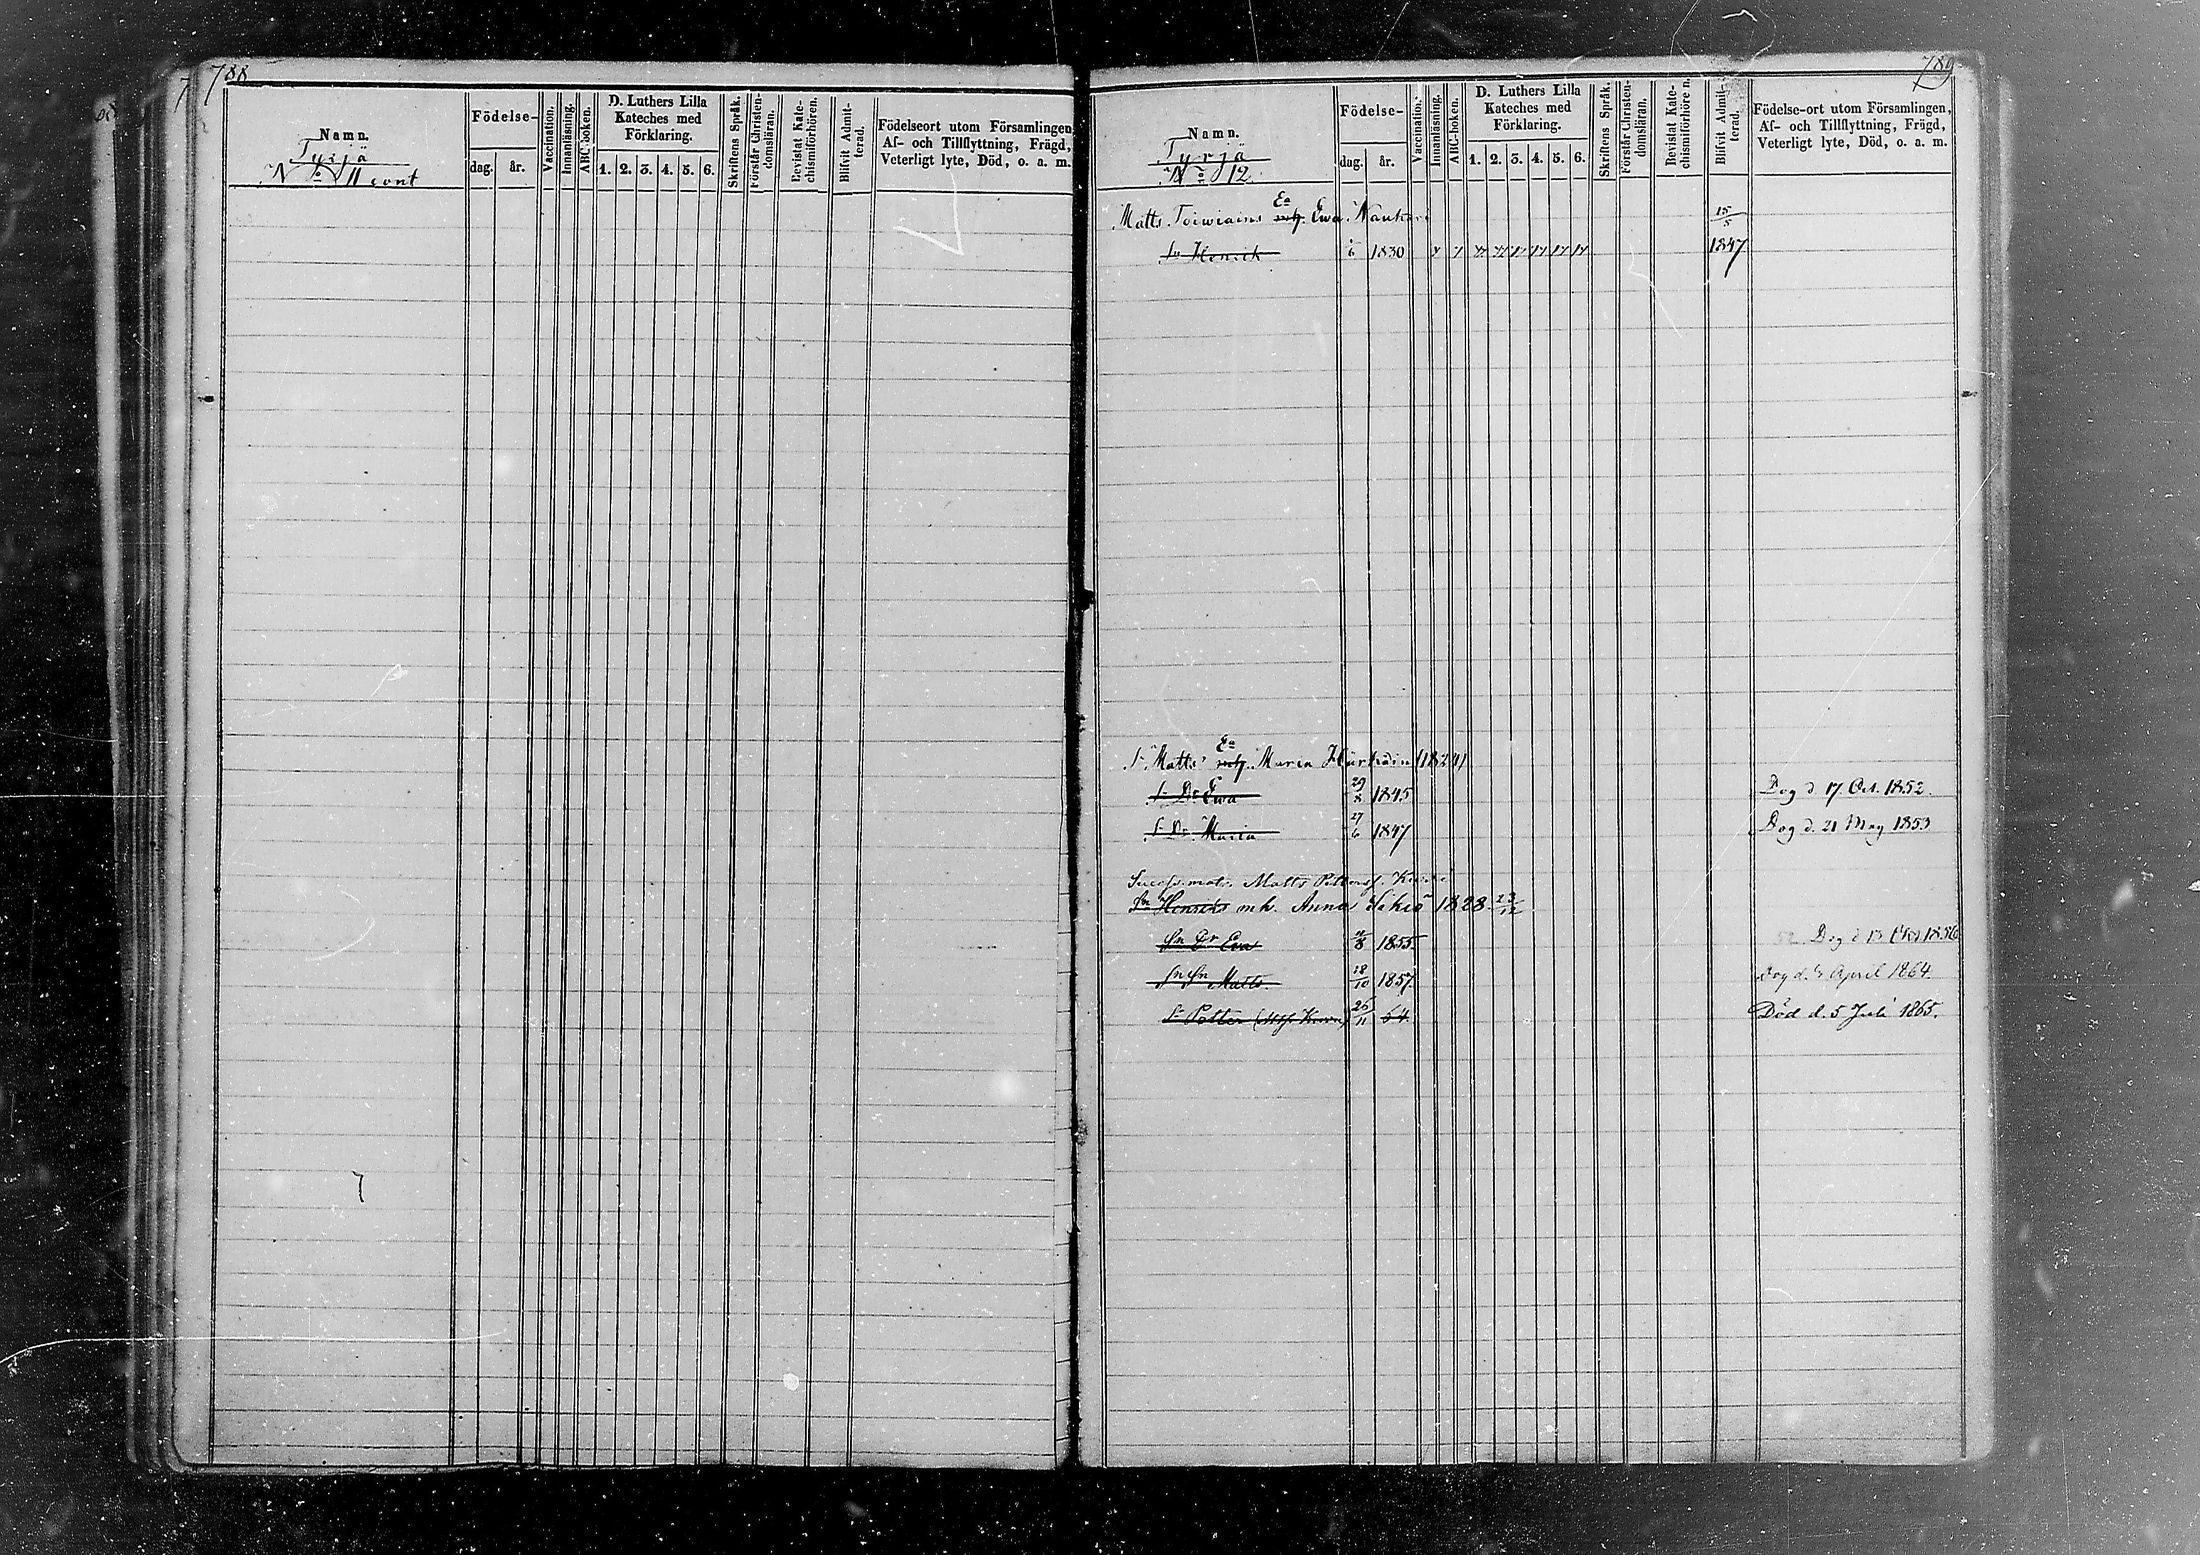 788
Namn.
Tyrjä
No 11 cont
Födelse-
dag. år.
Vaccination.
Innanläsning.
ABC-boken.
D. Luthers Lilla
Kateches med
Förklaring.
1. 2. 3. 4. 5. 6.
Skriftens Språk.
Förstår Christen-
domsläran.
Bevistat Kate-
chismiförhören.
Blifvit Admit-
terad.
Födelseort utom Församlingen,
Af- och Tillflyttning, Frägd,
Veterligt lyte, Död, o. a. m.
789
Namn.
Tyrjä
No 12
Födelse-
dag. år.
Vaccination.
Innanläsning.
ABC-boken.
D. Luthers Lilla
Kateches med
Förklaring.
1. 2. 3. 4. 5. 6.
Skriftens Språk.
Förstår Christen-
domsläran.
Bevistat Kate-
chismiförhören.
Blifvit Admit-
terad.
Födelse-ort utom Församlingen,
Af- och Tillflyttning, Frägd,
Veterligt lyte, Död, o. a. m.
Matts Toiwiains Ea Ewa 15/5
Sn Henrik 1830 1847
Sn Matts Ea Maria (1824)
Sn Dr Ewa 29/8 1845 Dog d 17 Oct. 1852.
Sn Dr Maria 27/6 1847 Dog d. 21 May 1853
Matts
Sn Henriks mh. Anna 1828 23/12
Sn Dr Eva 1855 Dog d 13 1856
Sn Sn Matts 18/10 1857 Dog d. April 1864
Sn Petter 25/11 64. Död d. 5 Juli 1865.